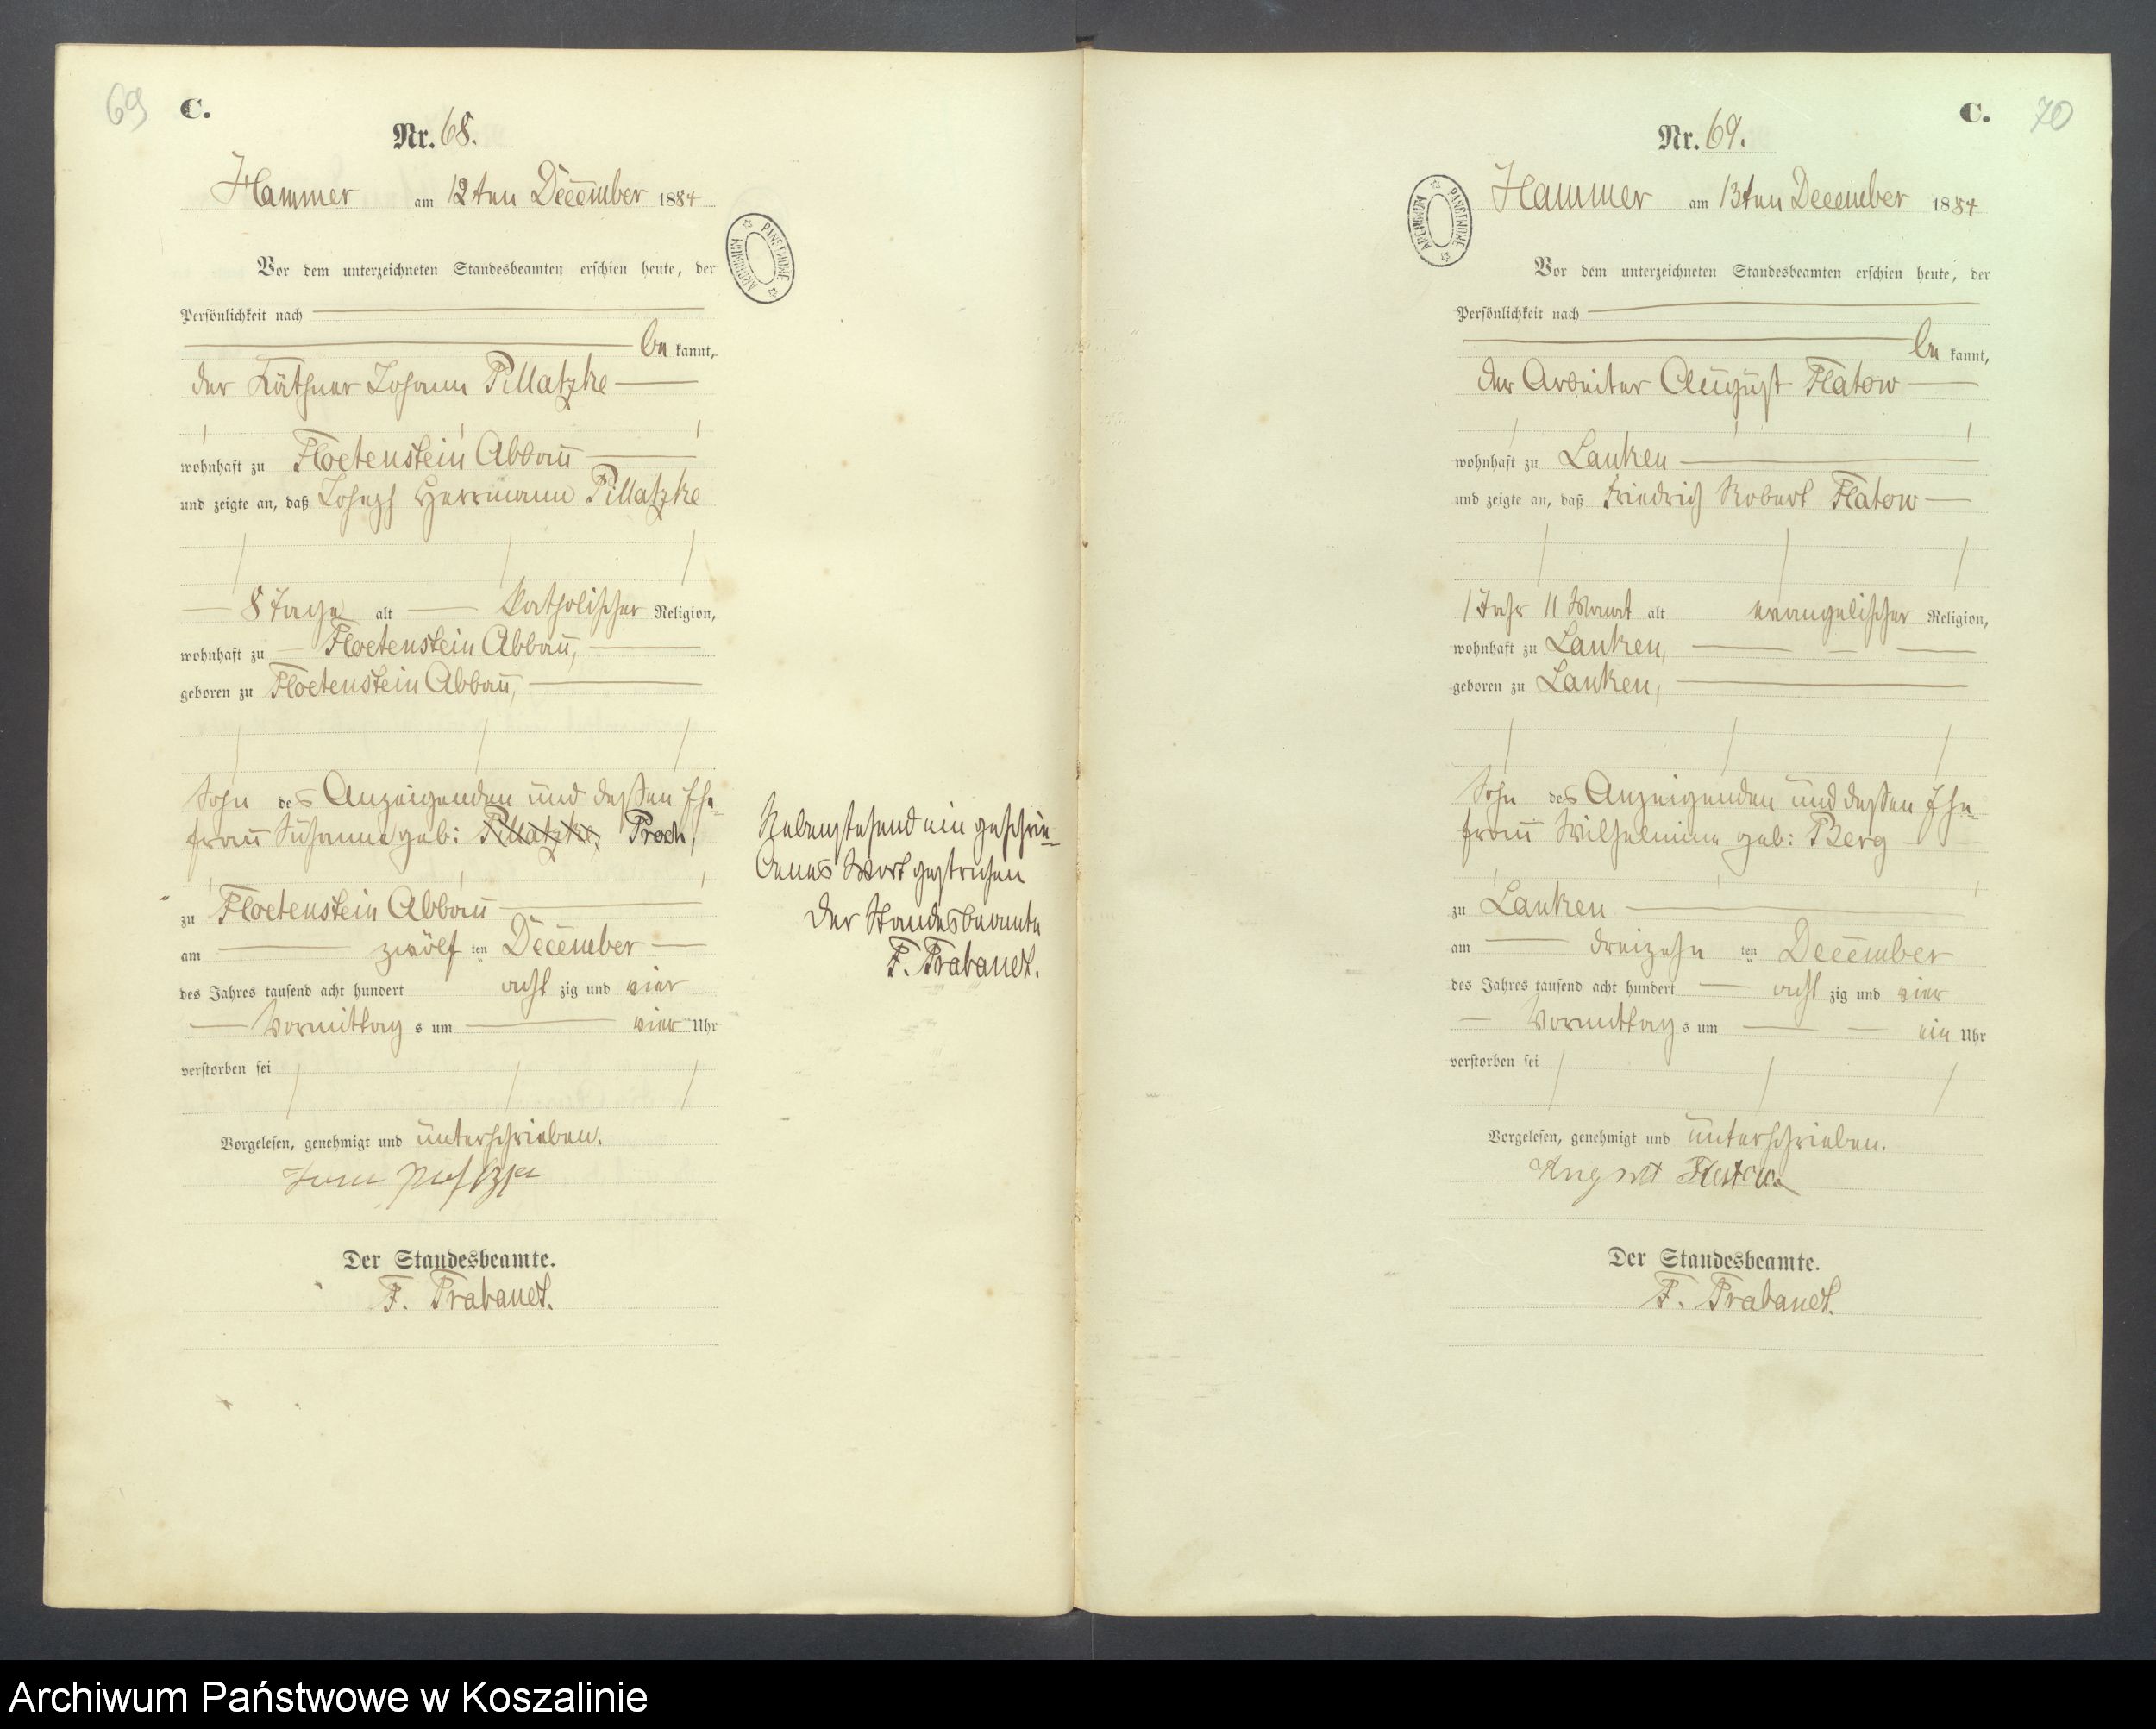 69
C.
Nr. 68.
Hammer am 12ten December 1884
Vor dem unterzeichneten Standesbeamten erschien heute, der
Persönlichkeit nach
be kannt,
der Käthner Johann Pillatzke
wohnhaft zu Floetenstein Abbau
und zeigte an, daß Joseph Herrmann Pillatzke
8 Tage alt katholischer Religion,
wohnhaft zu Floetenstein Abbau,
geboren zu Floetenstein Abbau,
Sohn des Anzeigenden und dessen Ehe-
frau Susanne geb: Pillatzke, Proch,
zu Floetenstein Abbau
am zwölf ten December
des Jahres tausend acht hundert acht zig und vier
Vormittag s um vier Uhr
verstorben sei
Vorgelesen, genehmigt und unterschrieben.
Der Standesbeamte.
F. Trabandt.
ARCHIWUM PAŃSTWOWE
Nebenstehend ein geschrie-
benes Wort gestrichen
Der Standesbeamte
F. Trabandt.
C.
70
Nr. 69.
Hammer am 13ten December 1884
ARCHIWUM PAŃSTWOWE
Vor dem unterzeichneten Standesbeamten erschien heute, der
Persönlichkeit nach
be kannt,
der Arbeiter August Flatow
wohnhaft zu Lanken
und zeigte an, daß Friedrich Robert Flatow
1 Jahr 11 Monat alt evangelischer Religion,
wohnhaft zu Lanken,
geboren zu Lanken,
Sohn des Anzeigenden und dessen Ehe-
frau Wilhelmine geb: Berg
zu Lanken
am dreizehn ten December
des Jahres tausend acht hundert acht zig und vier
Vormittag s um ein Uhr
verstorben sei
Vorgelesen, genehmigt und unterschrieben.
August Flatow
Der Standesbeamte.
F. Trabandt.
Archiwum Państwowe w Koszalinie